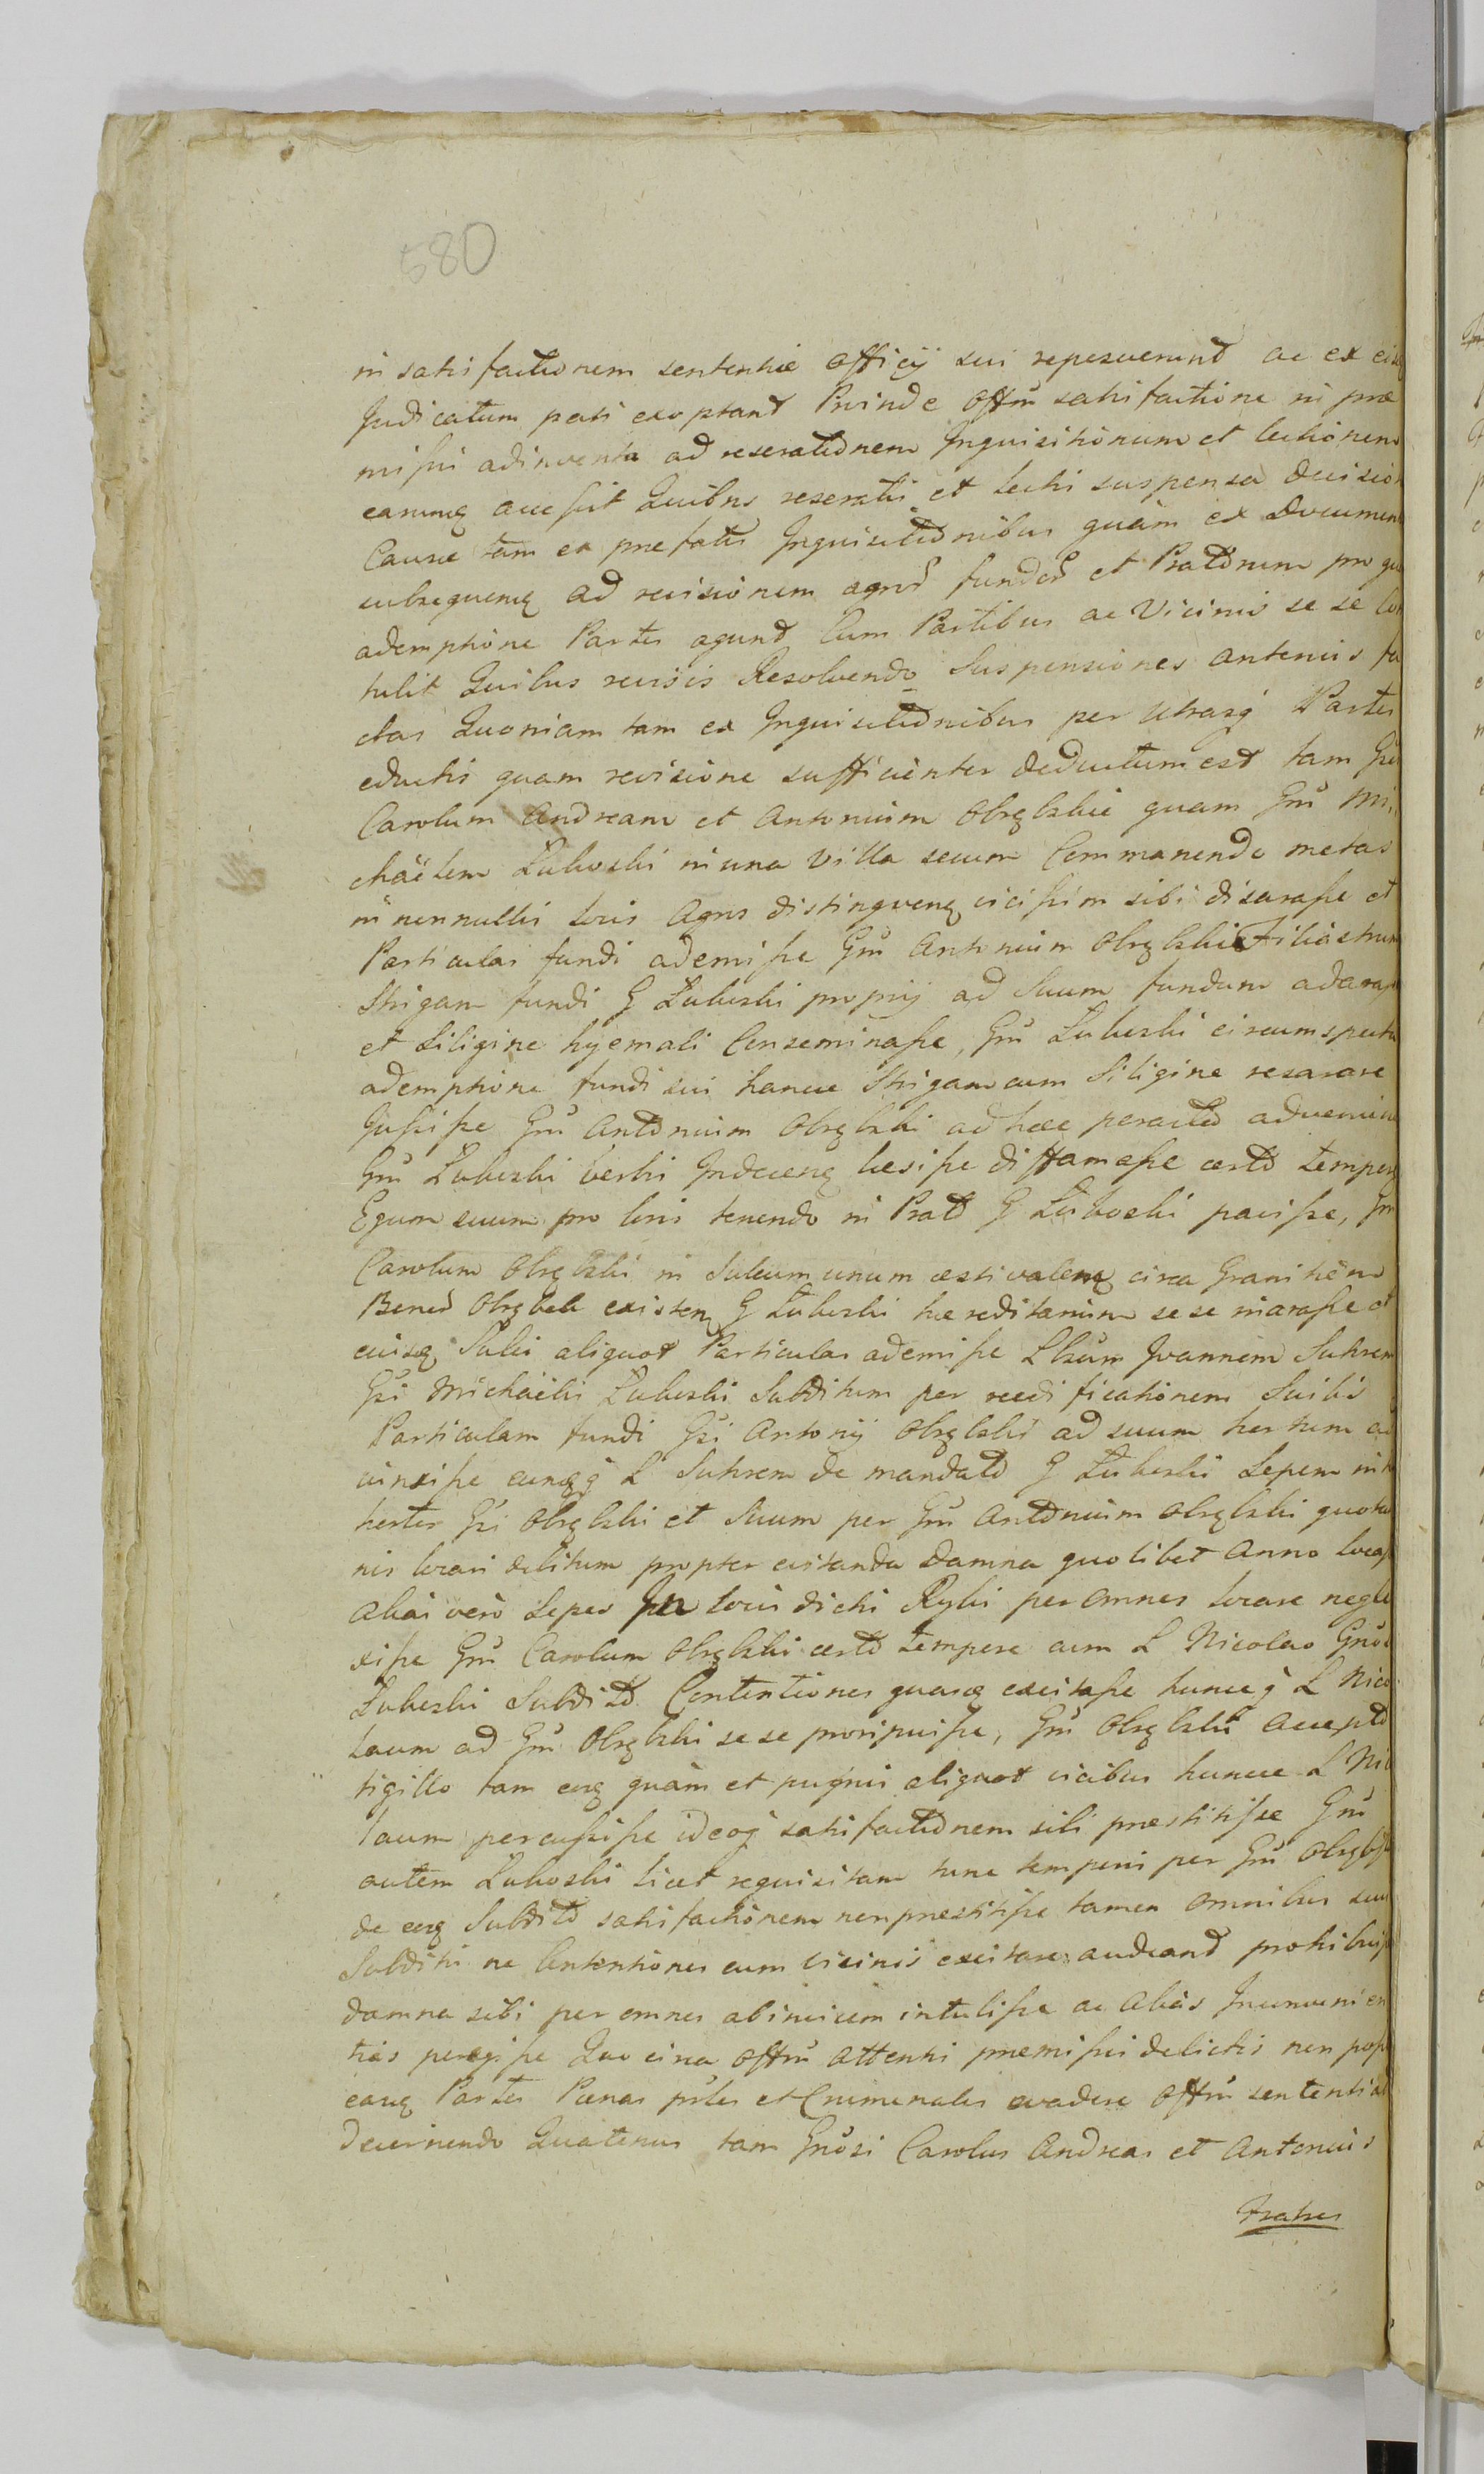 580
in satisfactionem sententiæ officÿ sui reposuerunt ac ex eisd
Judicatum pati exoptant Proinde Offm satisfactione in præ
missis adinventa ad reserationem Inquisitionum et lectionem
earumq accessit Quibus reseratis et lectis suspensa decision
Causæ tam ex præfatis Inquisitionibus quàm ex Documen
subsequenq ad revisionem agror fundor et Pratorum pro qu
ademptione Partes agunt Cum Partibus ac Vicinis se se con
tulit Quibus revisis Resolvendo Suspensiones antenius fa
ctas Quoniam tam ex Inquisitionibus per utrasq Partes
eductis quam revisione sufficienter deductum est tam Gsu
Carolum Andream et Antonium Obrębskie quam Gsu Mi
chaëlem Łubieski in una Villa secum Commanendo metas
in nonnullis locis Agros distingvenq vicissim sibi disarasse et
Particulas fundi ademisse Gsu Antonium Obrębski Filiastrum
Strigam fundi G Łubieski propriÿ ad Suum fundum adarasse
et Siligine hyemali Conseminasse, Gsu Łubieski circumspecta
ademptione fundi sui hancce Strigam cum Siligine resarare
Jussisse Gsu Antonium Obrębski ad hæc peracta advenien
Gsu Łubieski verbis Indecenq læsisse diffamasse certo tempore
Equum suum pro loris tenendo in Prato G Łubieski pavisse, Gsu
Carolum Obrębski in Sulcum unum æstivalemq circa Granitiem
Bonor Obrębek existen G Łubieski hæreditarium se se inarasse et
eiusq Sulci aliquot Particulas ademisse Lbsum Joannem Sutrem
Gsi Michaëlis Łubieski Subditum per reedificationem Suilis
Particulam fundi Gsi Antonÿ Obrębski ad suum hortum ad
cinxisse eumqq L Sutrem de mandato G Łubieski Sepem int
hortos Gsi Obrębski et Suum per Gsu Antonium Obrębski quotan
nis locari debitum propter evitanda Damna quolibet Anno locass
alias verò Sepes In locis dicti Rybi per omnes locare negle
xisse Gsu Carolum Obrębski certo tempore cum L Nicolao Gnosi
Łubieski Subdito Contentiones quasq excitasse huncq L Nico
laum ad Gsu Obrębski se se proripuisse, Gsu Obrębski accepto
tigillo tam eoq quàm et pugnis aliquot vicibus huncce L Nic
laum percussisse ideoq satisfactionem sibi præstitisse Gsu
autem Łubieski licet requisitam tunc temporis per Gsu Obrębsk
de eoq Subdito satisfactionem non præstitisse tamen omnibus suis
Subditis ne Contentiones cum vicinis excitare audeant prohibuisse
damna sibi per omnes abinvicem intulisse ac alias Inconvenien
tias peregisse Quo circa Offm attentis præmissis delictis non poss
easq Partes Pænas pnles et Criminales evadere Offm sententiat
decernendo Quatenus tam Gnosi Carolus Andreas et Antonius
Fratres